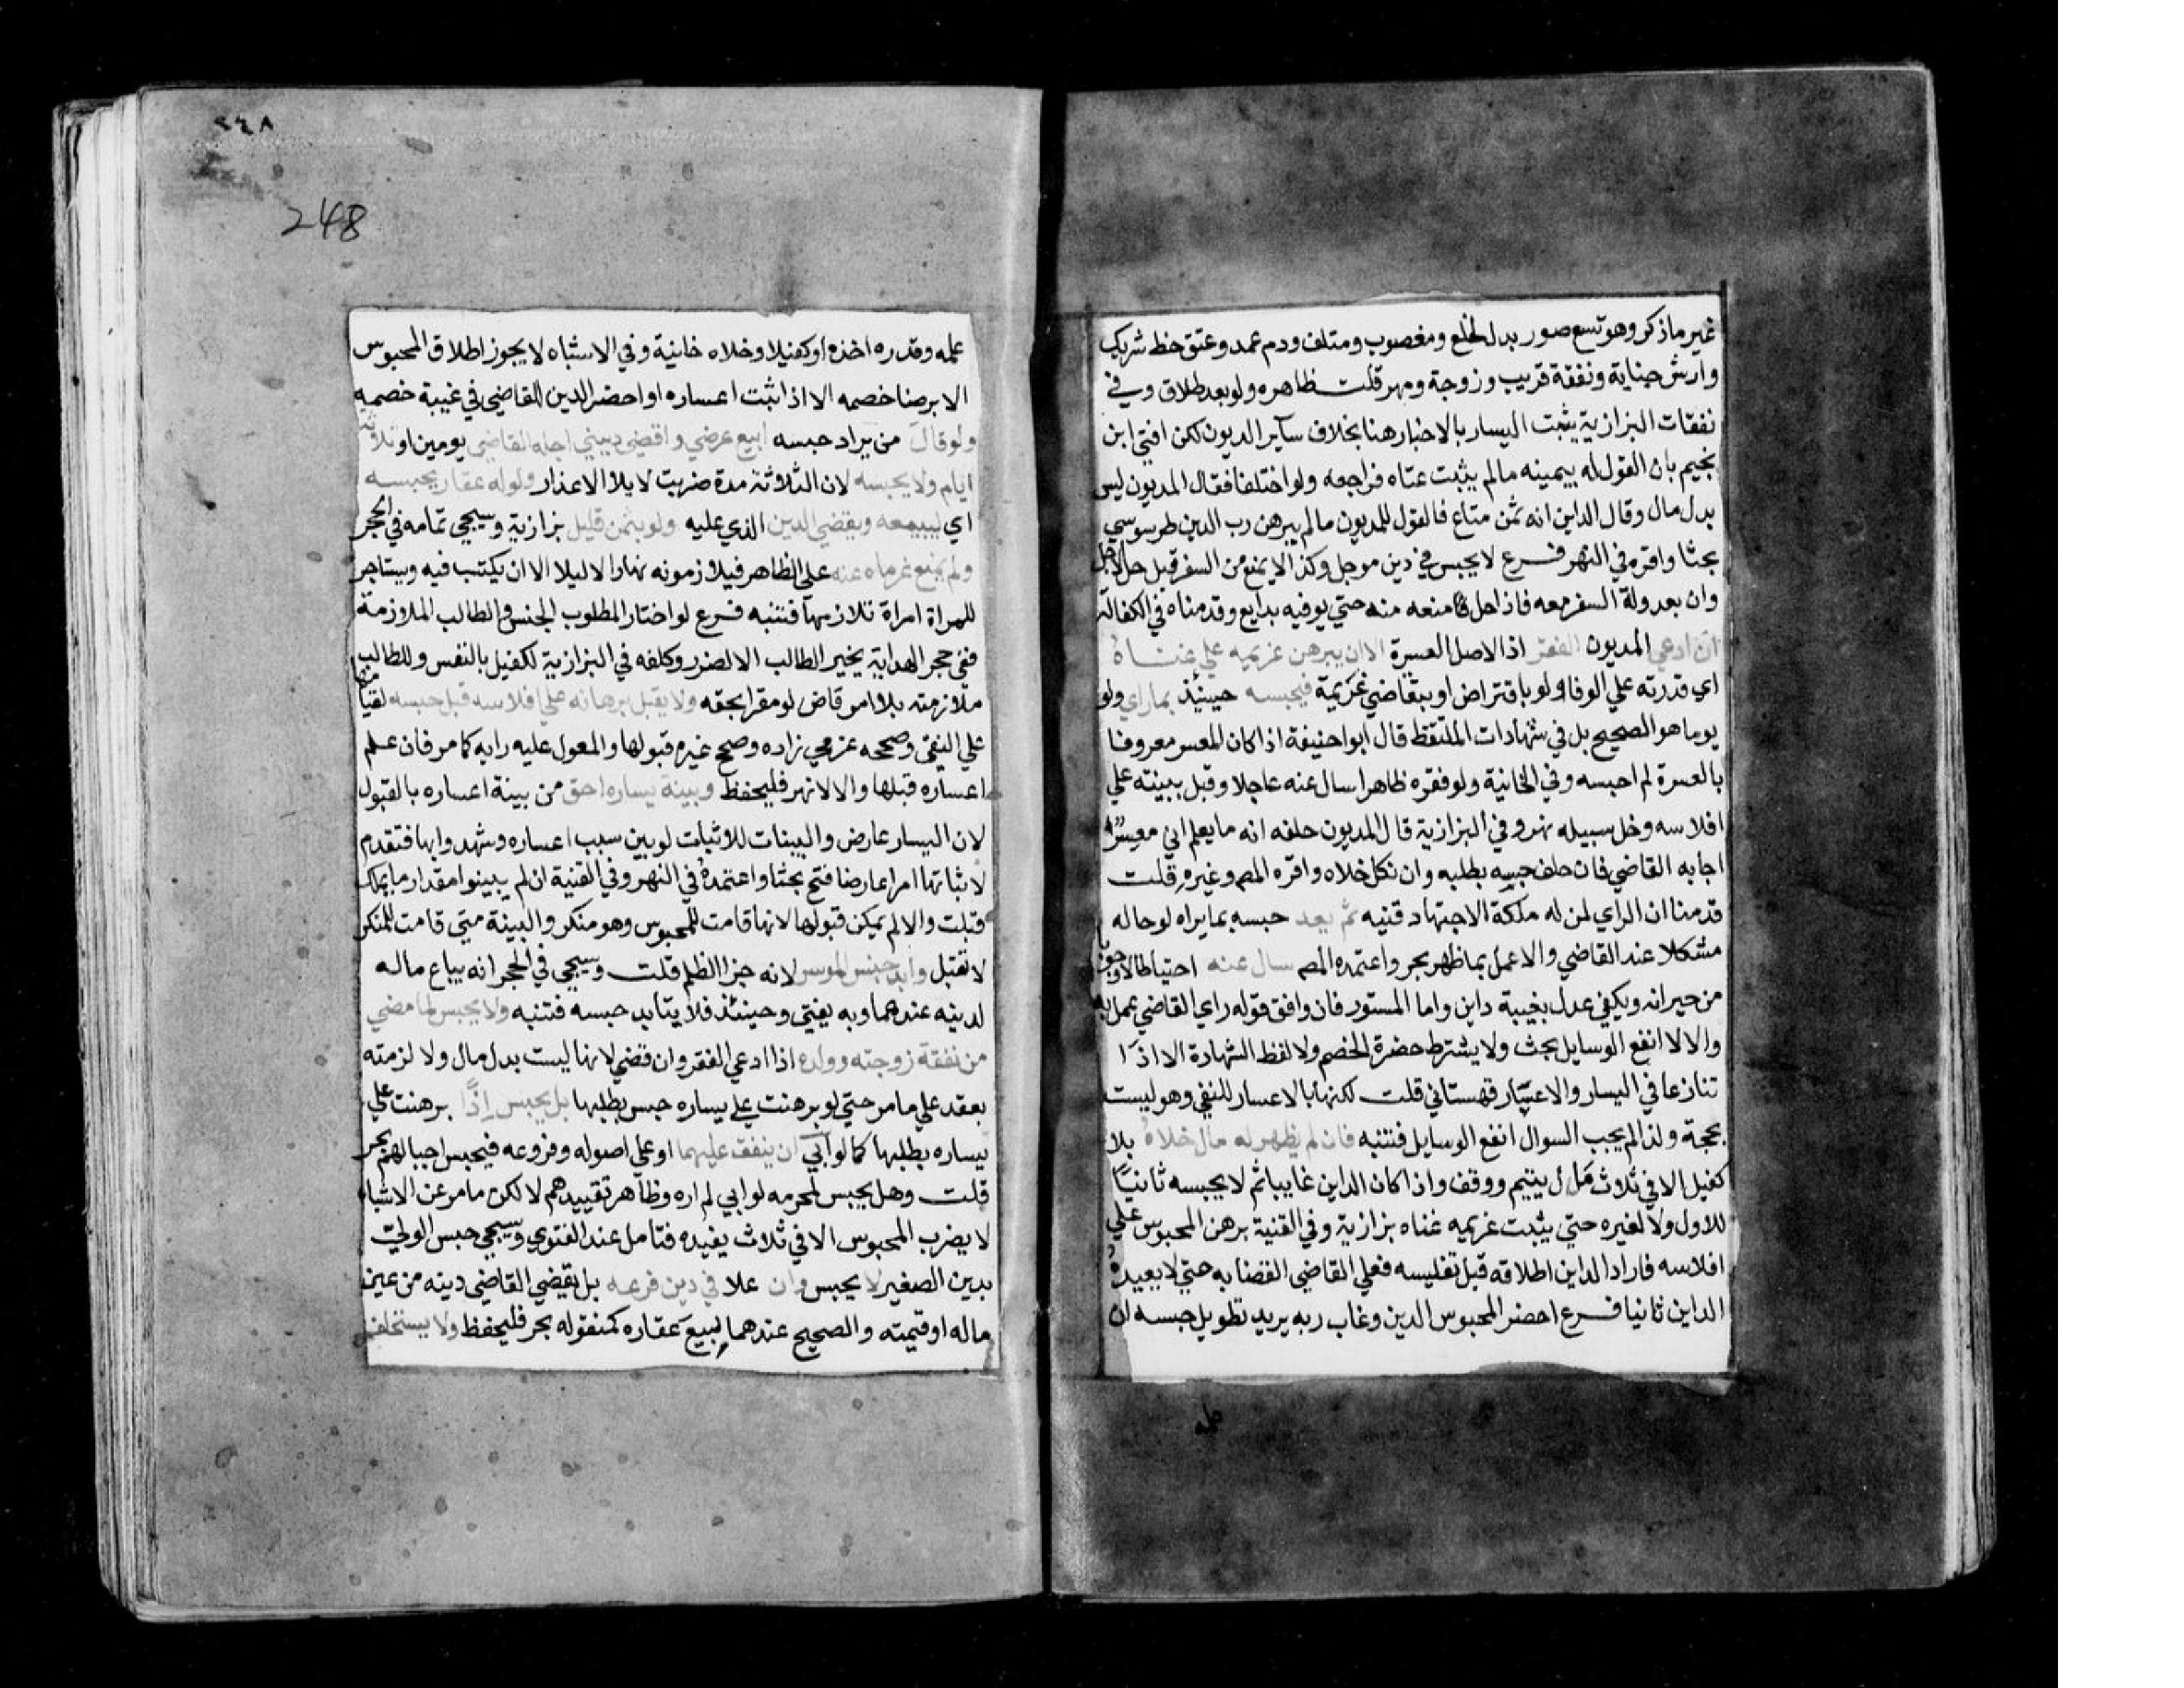 غير ما ذكر وهو تسع صور بدل الخلع ومغصوب ومتلف ودم عمد وعتق حظ شريك
وارش جناية ونفقة قريب وزوجة ومهر قلت ظاهره ولو بعد طلاق وفي
نفقات البزازية يثبت اليسار بالاخبار هنا بخلاف ساير الديون لكن افتي ابن
نجيم بان القول له بيمينه مالم يثبت غناه فراجعه ولو اختلفا فقال المديون ليس
بدل مال وقال الداين انه ثمن متاع فالقول للمديون مالم يبرهن رب الدين طرسوسي
بحثا واقره في النهر فرع لا يحبس في دين موجل وكذا لا يمنع من السفر قبل حل الاجل
وان بعد وله السفر معه فاذا حل منعه منه حتي يوفيه بدايع وقدمناه في الكفالة
ان ادعي المديون الفقر اذ الاصل العسرة الا ان يبرهن غريمه علي غناه
اي قدرته علي الوفا ولو باقتراض او بتقاضي غريمه فيحبسه حينيذ بما راي ولو
يوما هو الصحيح بل في شهادات الملتقط قال ابو احنيفة اذا كان المعسر معروفا
بالعسرة لم احبسه وفي الخانية ولو فقره ظاهرا سال عنه عاجلا وقبل ببينته علي
افلاسه وخل سبيله نهر وفي البزازية قال المديون حلفه انه ما يعلم اني معسرًا
اجابه القاضي فان حلف حبسه بطلبه وان نكل خلاه واقره المص وغيره قلت
قدمنا ان الراي لمن له ملكة الاجتهاد قنيه ثم بعد حبسه بما يراه لو حاله
مشكلا عند القاضي والا عمل بما ظهر بحر واعتمده المص سال عنه احتياطا لا وجوبا
من جيرانه ويكفي عدل بغيبة داين واما المستور فان وافق قوله راي القاضي عمل به
والا لا انفع الوسايل بحث ولا يشترط حضرة الخصم ولا لفظ الشهادة الا اذا
تنازعا في اليسار والاعسار قهستاني قلت لكنها بالاعسار للنفي وهو ليست
بحجة ولذا لم يجب السوال انفع الوسايل فتنبه فان لم يظهر له مال خلاه بلا
كفيل الا في ثلاث مال يتيم ووقف واذا كان الداين غايبا ثم لا يحبسه ثانيًا
للاول ولا لغيره حتي يثبت غريمه غناه بزازية وفي القنية برهن المحبوس علي
افلاسه فاراد الداين اطلاقه قبل تفليسه فعلي القاضي القضا به حتي لا يعيده
الداين ثانيا فرع احضر المحبوس الدين وغاب ربه يريد تطويل حبسه ان
٢٤٨
248
علمه وقدره اخذه او كفيلا وخلاه خانية وفي الاشباه لا يجوز اطلاق المحبوس
الا برضا خصمه الا اذا ثبت اعساره او احضر الدين للقاضي في غيبة خصمه
ولو قال من يراد حبسه ابيع عرضي واقضي ديني اجله القاضي يومين او ثلاثة
ايام ولا يحبسه لان الثلاثة مدة ضربت لابلا الاعذار ولو له عقار يحبسه
اي ليبيعه ويقضي الدين الذي عليه ولو بثمن قليل بزازية وسيجي تمامه في الحجر
ولم يمنع غرماه عنه علي الظاهر فيلازمونه نهارا لا ليلا الا ان يكتب فيه ويستاجر
للمراة امراة تلازمها فتنبه فرع لو اختار المطلوب الحبس والطالب الملازمة
ففي حجر الهداية يخير الطالب الا لضرر وكلفه في البزازية لكفيل بالنفس وللطالب
ملازمته بلا امر قاض لو مقرا بحقه ولا يقبل برهانه علي افلاسه قبل حبسه لقيامها
علي النفي وصححه عزمي زاده وصحح غيره قبولها والمعول عليه رايه كما مر فان علم
اعساره قبلها والا لا نهر فليحفظ وبينة يساره احق من بينة اعساره بالقبول
لان اليسار عارض والبينات للاثبات لو بين سبب اعساره وشهدوا بها فتقدم
لاثباتها امرا عارضا فتح بحثا واعتمده في النهر وفي القنية ان لم يبينوا مقدار ما يملك
قبلت والا لم يمكن قبولها لانها قامت للمحبوس وهو منكر والبينة متي قامت للمنكر
لا تقبل وابد حبس الموسر لانه جزا الظلم قلت وسيجي في الحجر انه يباع ماله
لدينه عندهما وبه يفتي وحينئذ فلا يتابد حبسه فتنبه ولا يحبس لما مضي
من نفقة زوجته وولده اذا ادعي الفقر وان قضي لانها ليست بدل مال ولا لزمته
بعقد علي ما مر حتي لو برهنت علي يساره حبس بطلبها بل يحبس اذًا برهنت علي
يساره بطلبها كما لو ابي ان ينفق عليهما او علي اصوله وفروعه فيحبس احيا لهم بحر
قلت وهل يحبس لمحرمه لو ابي لم اره وظاهر تقييدهم لا لكن ما مر عن الاشباه
لا يضرب المحبوس الا في ثلاث يفيده فتامل عند الفتوي وسيجي حبس الولي
بدين الصغير لا يحبس وان علا في دين فرعه بل يقضي القاضي دينه من عين
ماله او قيمته والصحيح عندهما لبيع عقاره كمنقوله بحر فليحفظ ولا يستخلف